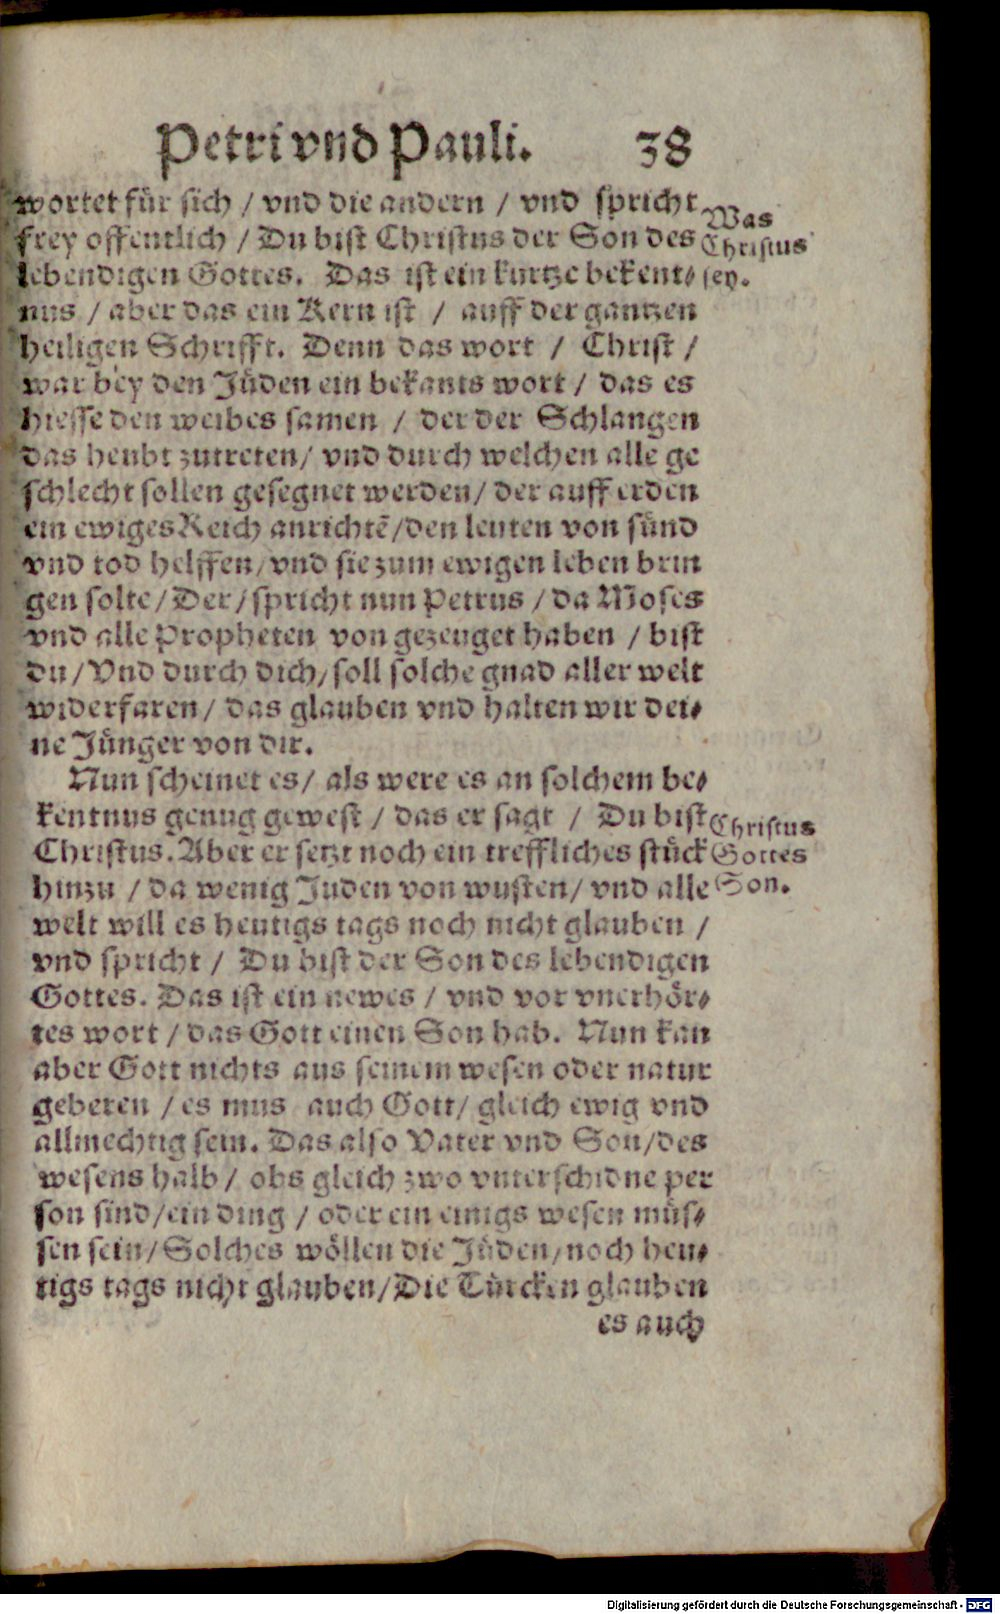 Petri vnd Pauli. 38
wortet für sich / vnd die andern / vnd spricht
frey offentlich / Du bist Christus der Son des
lebendigen Gottes. Das ist ein kurtze bekent-
nus / aber das ein Kern ist / auff der gantzen
heiligen Schrifft. Denn das wort / Christ /
war bey den Jüden ein bekants wort / das es
hiesse den weibes samen / der der Schlangen
das heubt zutreten / vnd durch welchen alle ge
schlecht sollen gesegnet werden / der auff erden
ein ewiges Reich anrichtē / den leuten von sünd
vnd tod helffen / vnd sie zum ewigen leben brin
gen solte / Der / spricht nun Petrus / da Moses
vnd alle Propheten von gezeuget haben / bist
du / Vnd durch dich / soll solche gnad aller welt
widerfaren / das glauben vnd halten wir dei-
ne Jünger von dir.
Was
Christus
sey.
Nun scheinet es / als were es an solchem be-
kentnus genug gewest / das er sagt / Du bist
Christus. Aber er setzt noch ein treffliches stück
hinzu / da wenig Juden von wusten / vnd alle
welt will es heutigs tags noch nicht glauben /
vnd spricht / Du bist der Son des lebendigen
Gottes. Das ist ein newes / vnd vor vnerhör-
tes wort / das Gott einen Son hab. Nun kan
aber Gott nichts aus seinem wesen oder natur
geberen / es mus auch Gott / gleich ewig vnd
allmechtig sein. Das also Vater vnd Son / des
wesens halb / obs gleich zwo vnterschidne per
son sind / ein ding / oder ein einigs wesen müs-
sen sein / Solches wöllen die Jüden / noch heu-
tigs tags nicht glauben / Die Türcken glauben
es auch
Christus
Gottes
Son.
Digitalisierung gefördert durch die Deutsche Forschungsgemeinschaft - DFG